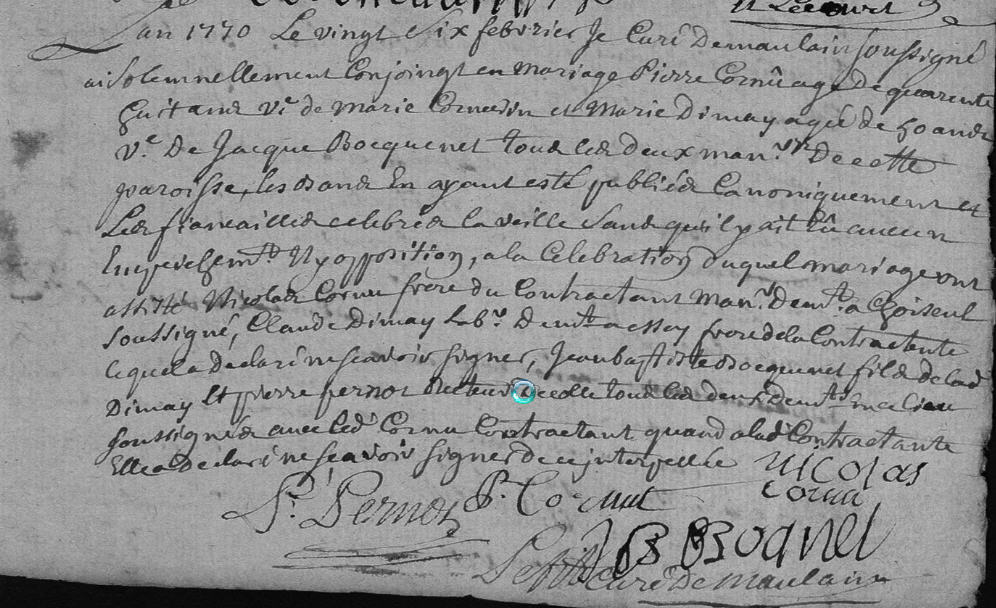 Lecouvet
L'an 1770 Le vingt six febvrier Je Curé De maulain soussigné
ai solemnellement Conjoingt en mariage Pierre Cornu agé De quarente
huit ans v.e de marie et Marie Dimay agée de 50 ans
v.e De Jacque Bocquenet tous les deux man.rs De cette
paroisse, les bans En ayant esté publiés Canoniquement et
Les fiancailles celebrés la veille sans qu'il y ait Eû aucun
Empechem.t Ny opposition, a la Celebration duquel mariage ont
assisté Nicolas Cornu frere du Contractant man.r Dem.t a Choiseul
soussigné, Claude Dimay Lab.r Dem.t a frere de la Contractante
lequel a Declaré ne scavoir signer, Jean baptiste Bocquenet fils de lad
Dimay Et pierre pernot Recteur D'ecolle tous les deux dem.t en ce lieu
soussignés avec led Cornu Contractant quand a lad Contractante
Elle a declaré ne scavoir signer de ce interpellée
Nicolas
Cornu
P. Pernot P. Cornut
J B Boqnel
curé De maulain